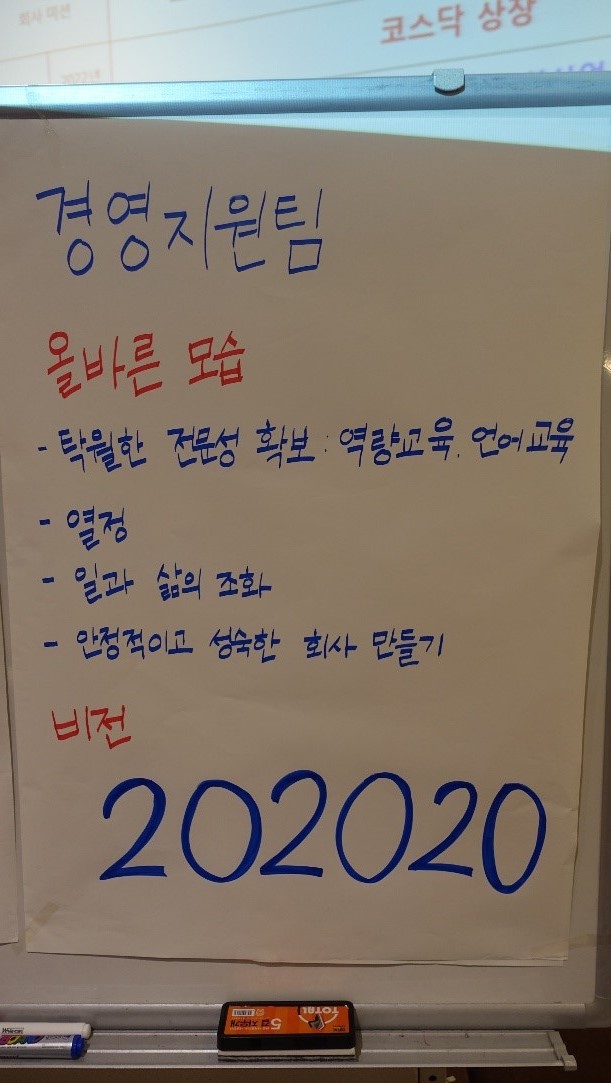 회사 미션
코스닥 상장
2027년
경영지원팀
올바른 모습
- 탁월한 전문성 확보 : 역량교육. 언어교육
- 열정
- 일과 삶의 조화
- 안정적이고 성숙한 회사 만들기
비전
202020
TOTAL
5